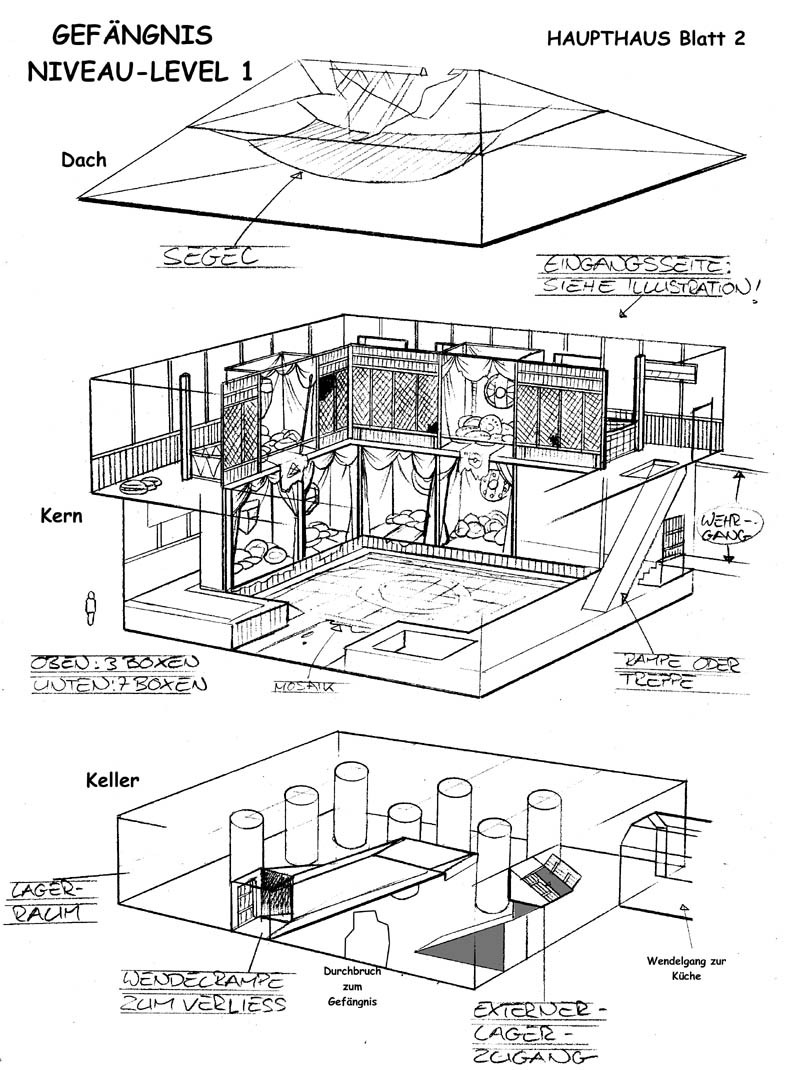 GEFÄNGNIS
NIVEAU-LEVEL 1
HAUPTHAUS Blatt 2
Dach
SEGEL
EINGANGSSEITE:
SIEHE ILLUSTRATION!
Kern
WEHR-
GANG
OBEN: 3 BOXEN
UNTEN: 7 BOXEN
MOSAIK
RAMPE ODER
TREPPE
Keller
LAGER-
RAUM
WENDELRAMPE
ZUM VERLIESS
Durchbruch
zum
Gefängnis
EXTERNER-
LAGER-
ZUGANG
Wendelgang zur
Küche